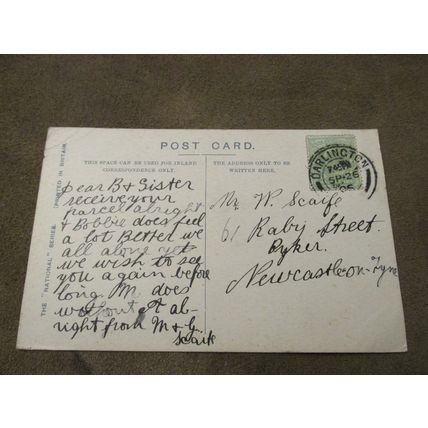 POST CARD.
THIS SPACE CAN BE USED FOR INLAND
CORRESPONDENCE ONLY.
THE ADDRESS ONLY TO BE
WRITTEN HERE.
THE "NATIONAL" SERIES. PRINTED IN BRITAIN.
DARLINGTON
SP 26
06
Dear B & Sister
receive your
Parcel alright
& Bobbie does feel
a lot Better we
all along
we wish to see
you again before
long. M. does
without it al-
right from M & G.
Scaife
Mr W. Scaife
61 Raby Street.
Byker.
Newcastle-on-Tyne